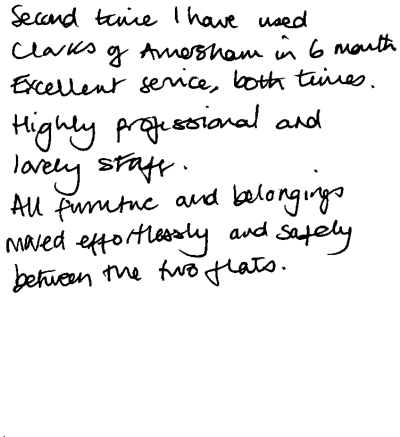 Second time I have used
Clarks of Amersham in 6 month
Excellent service, both times.
Highly professional and
lovely staff.
All furniture and belongings
moved effortlessly and safely
between the two flats.